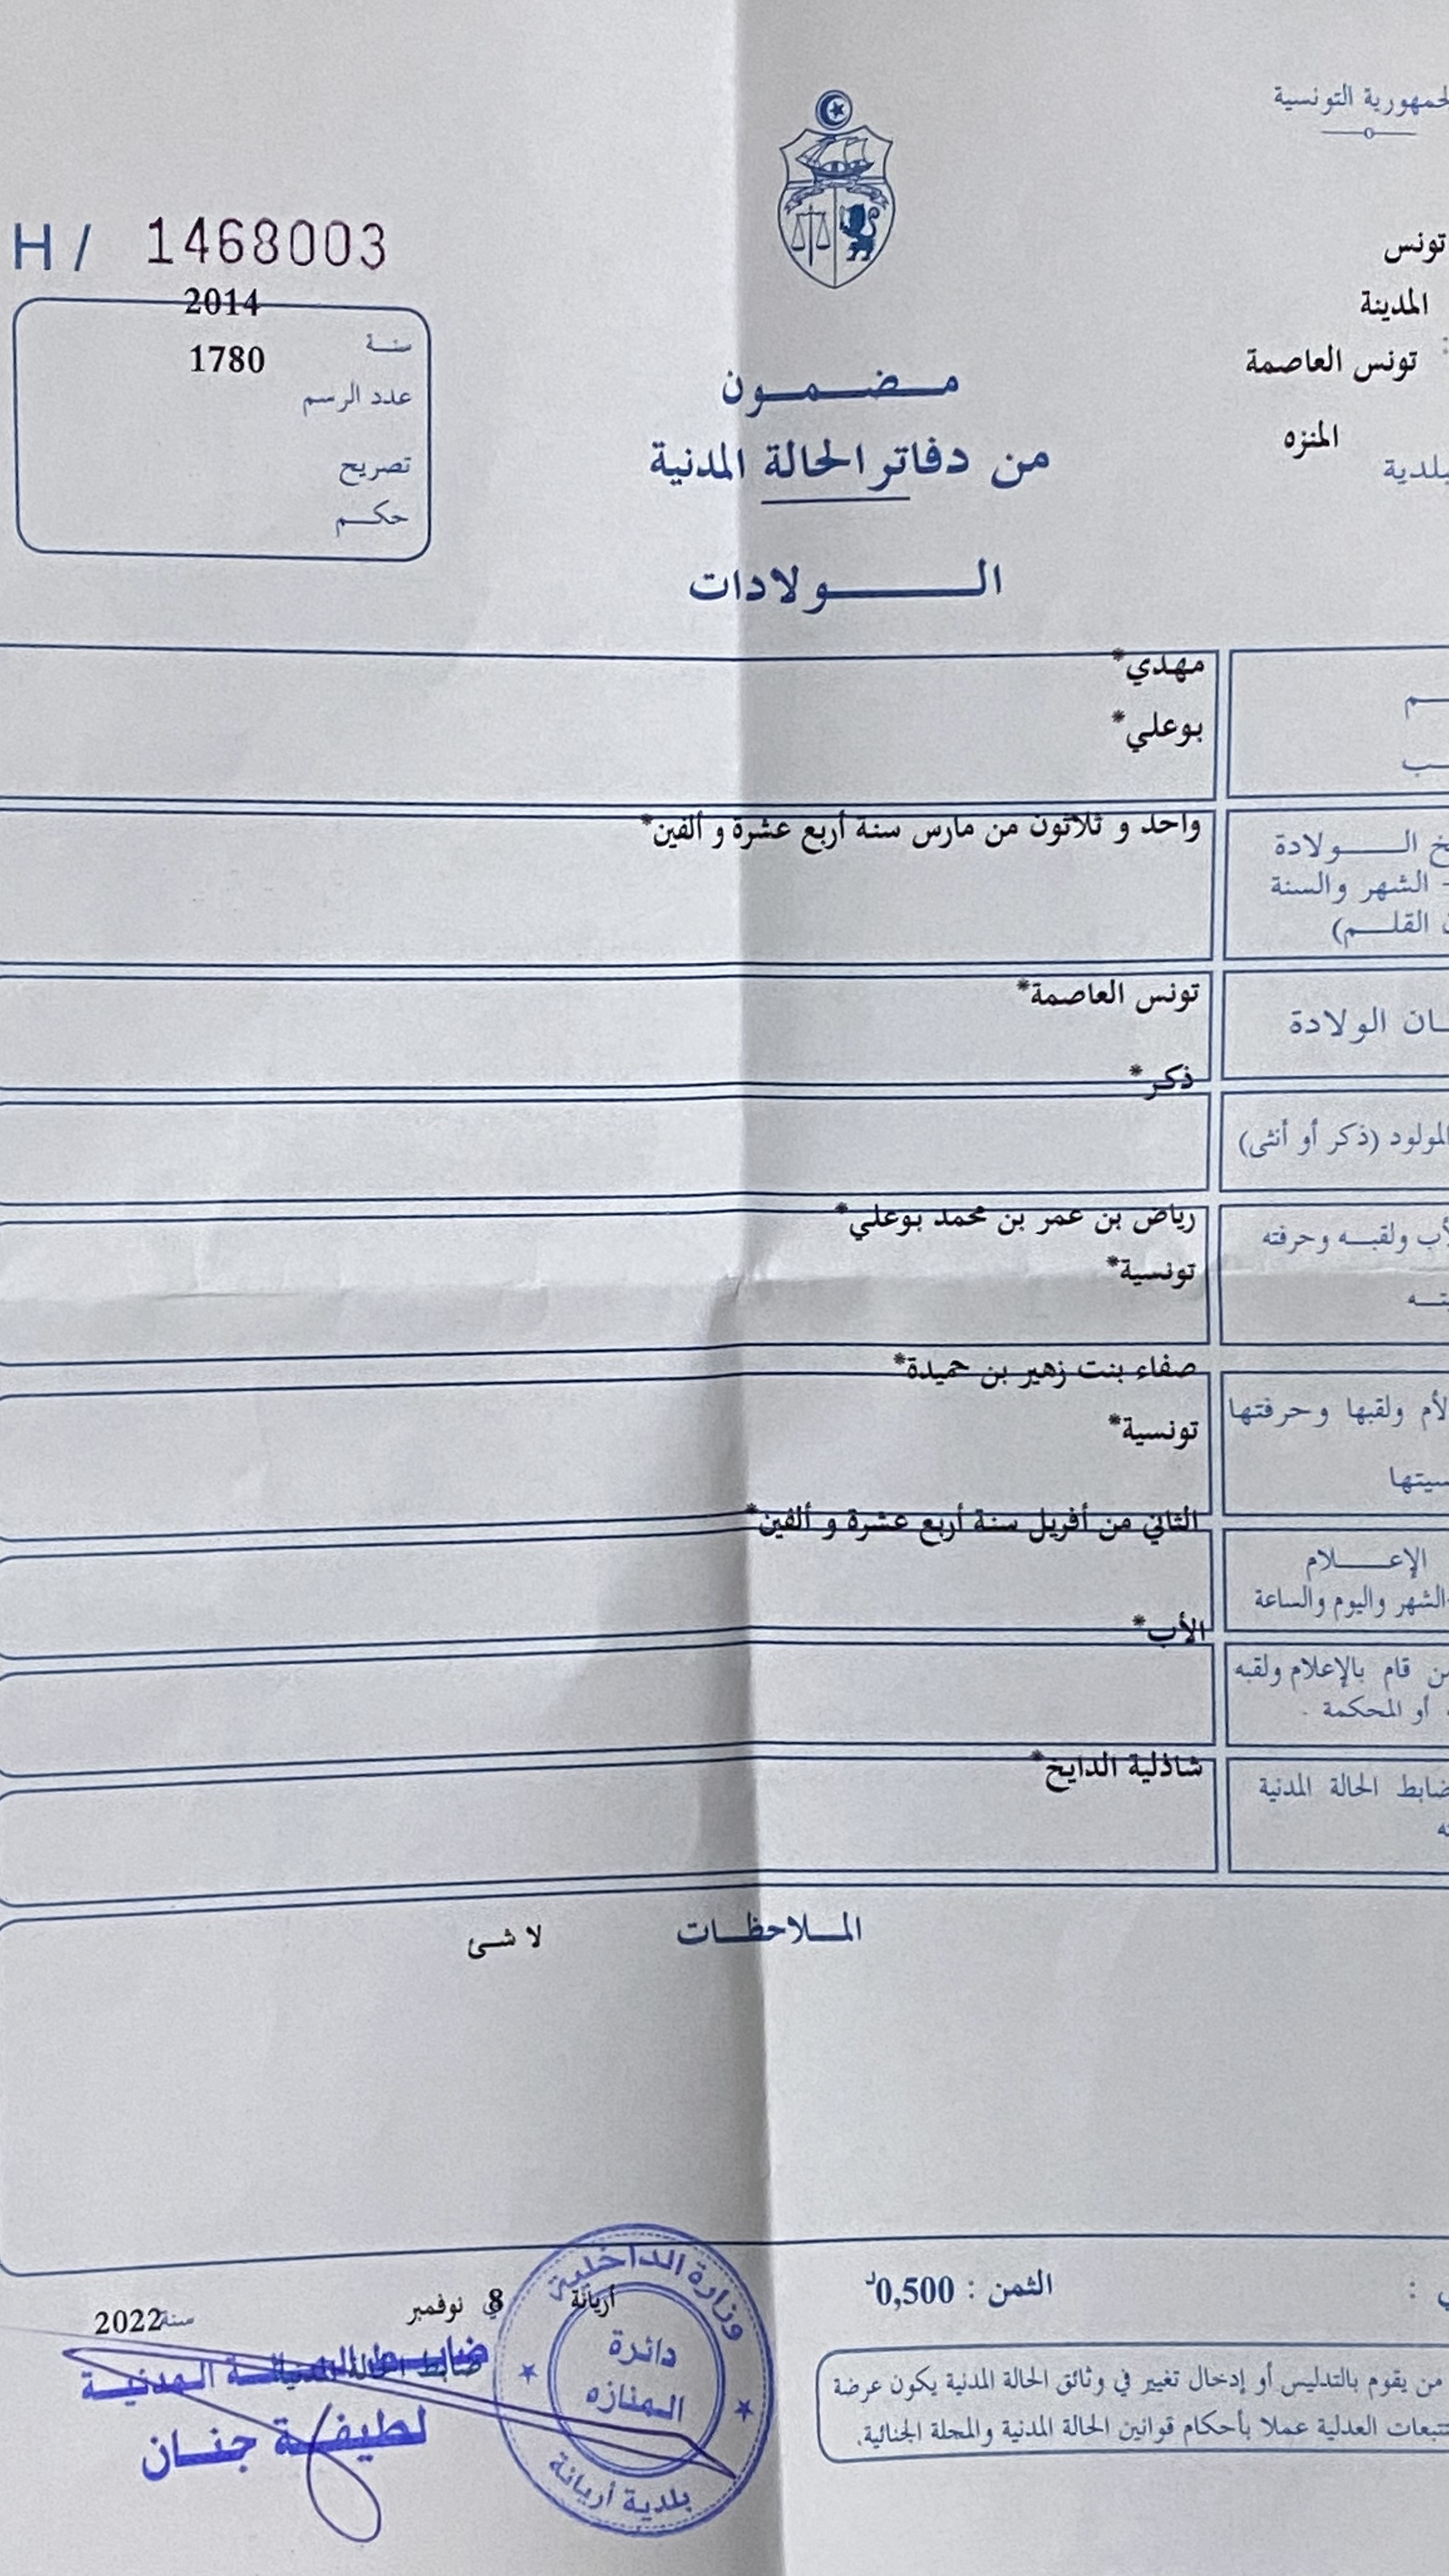 الجمهورية التونسية
تونس
المدينة
تونس العاصمة
المنزه
بلدية
H / 1468003
2014
سنة
1780
عدد الرسم
تصريح
حكم
مضمون
من دفاتر الحالة المدنية
الولادات
مهدي*
بوعلي*
واحد و ثلاثون من مارس سنة أربع عشرة و ألفين*
الولادة
- الشهر والسنة
القلم)
تونس العاصمة*
الولادة
ذكر*
المولود (ذكر أو أنثى)
رياض بن عمر بن محمد بوعلي*
ولقبه وحرفته
تونسية*
صفاء بنت زهير بن حميدة*
ولقبها وحرفتها
تونسية*
الثاني من أفريل سنة أربع عشرة و ألفين*
الإعلام
والشهر واليوم والساعة
الأب*
قام بالإعلام ولقبه
أو المحكمة .
شاذلية الدايخ*
ضابط الحالة المدنية
الملاحظات لا شى
الثمن : 0,500د
أريانة في 8 نوفمبر سنة 2022
ضابط الحالة المدنية
ضابط الحالة المدنية
لطيفة جنان
وزارة الداخلية
دائرة
المنازه
بلدية أريانة
من يقوم بالتدليس أو إدخال تغيير في وثائق الحالة المدنية يكون عرضة
للتتبعات العدلية عملا بأحكام قوانين الحالة المدنية والمجلة الجنائية.